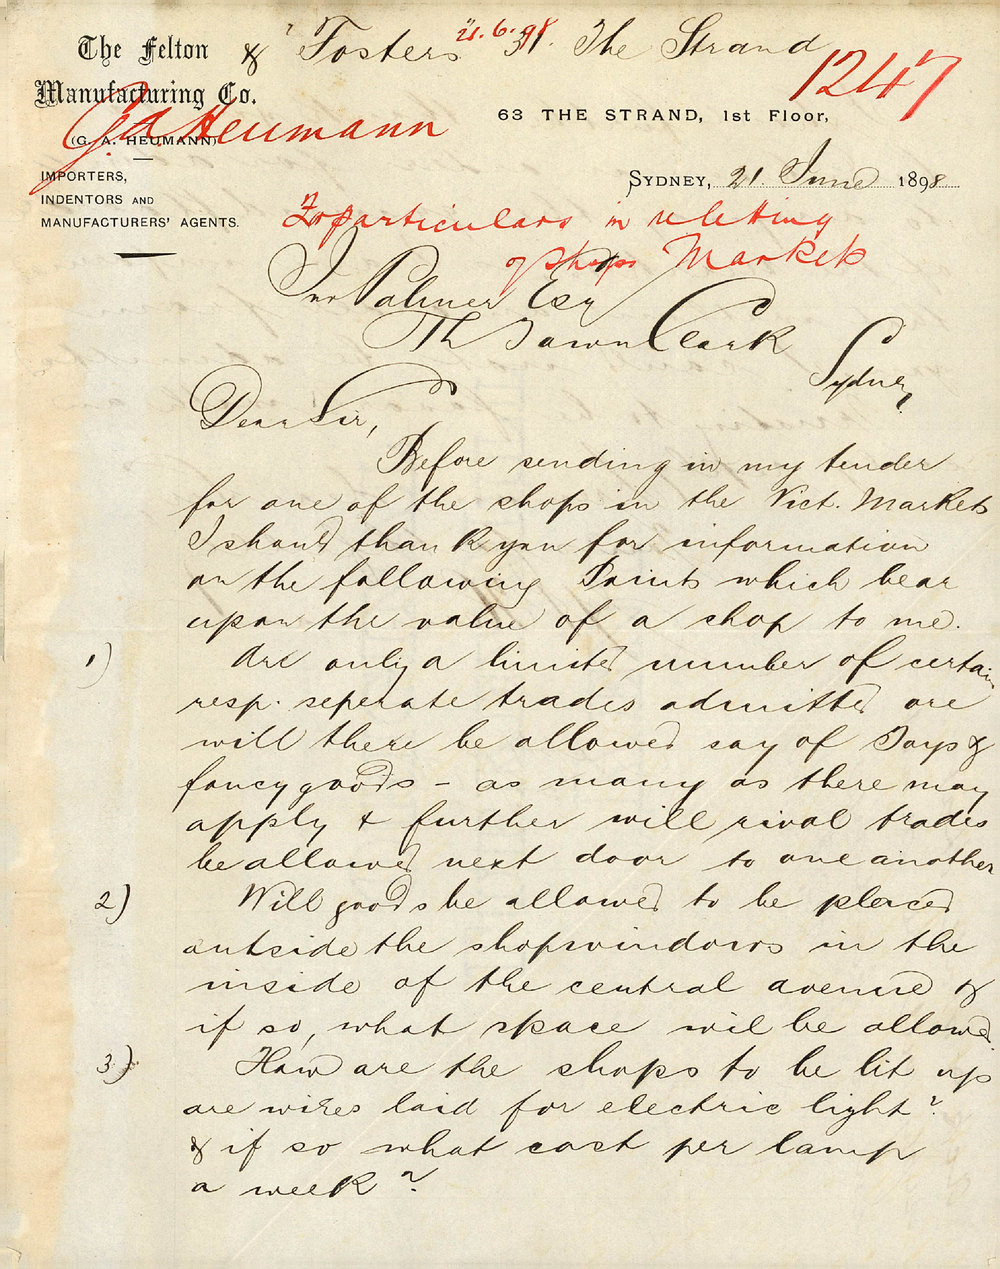 The Felton
Manufacturing Co.
(G. A. HEUMANN)
IMPORTERS,
INDENTORS AND
MANUFACTURERS' AGENTS.
& Fosters 31. The Strand
21.6.98
1247
G. A. Heumann
63 THE STRAND, 1st Floor,
SYDNEY, 21. June 1898
For particulars in re letting
of shops Markets
Jno Palmer Esq
Th Town Clark
Sydney,
Dear Sir,
Before sending in my tender
for one of the shops in the Vict. Markets
I should thank you for information
on the following Points which bear
upon the value of a shop to me.
1) Are only a limited number of certain
resp. seperate trades admitted are
will there be allowed say of Toys &
fancy goods - as many as there may
apply & further will rival trades
be allowed next door to one another
2) Will goods be allowed to be placed
outside the shopwindows in the
inside of the central avenue &
if so, what space will be allowed.
3) How are the shops to be lit up
are wires laid for electric light?
& if so what cost per lamp
a week?